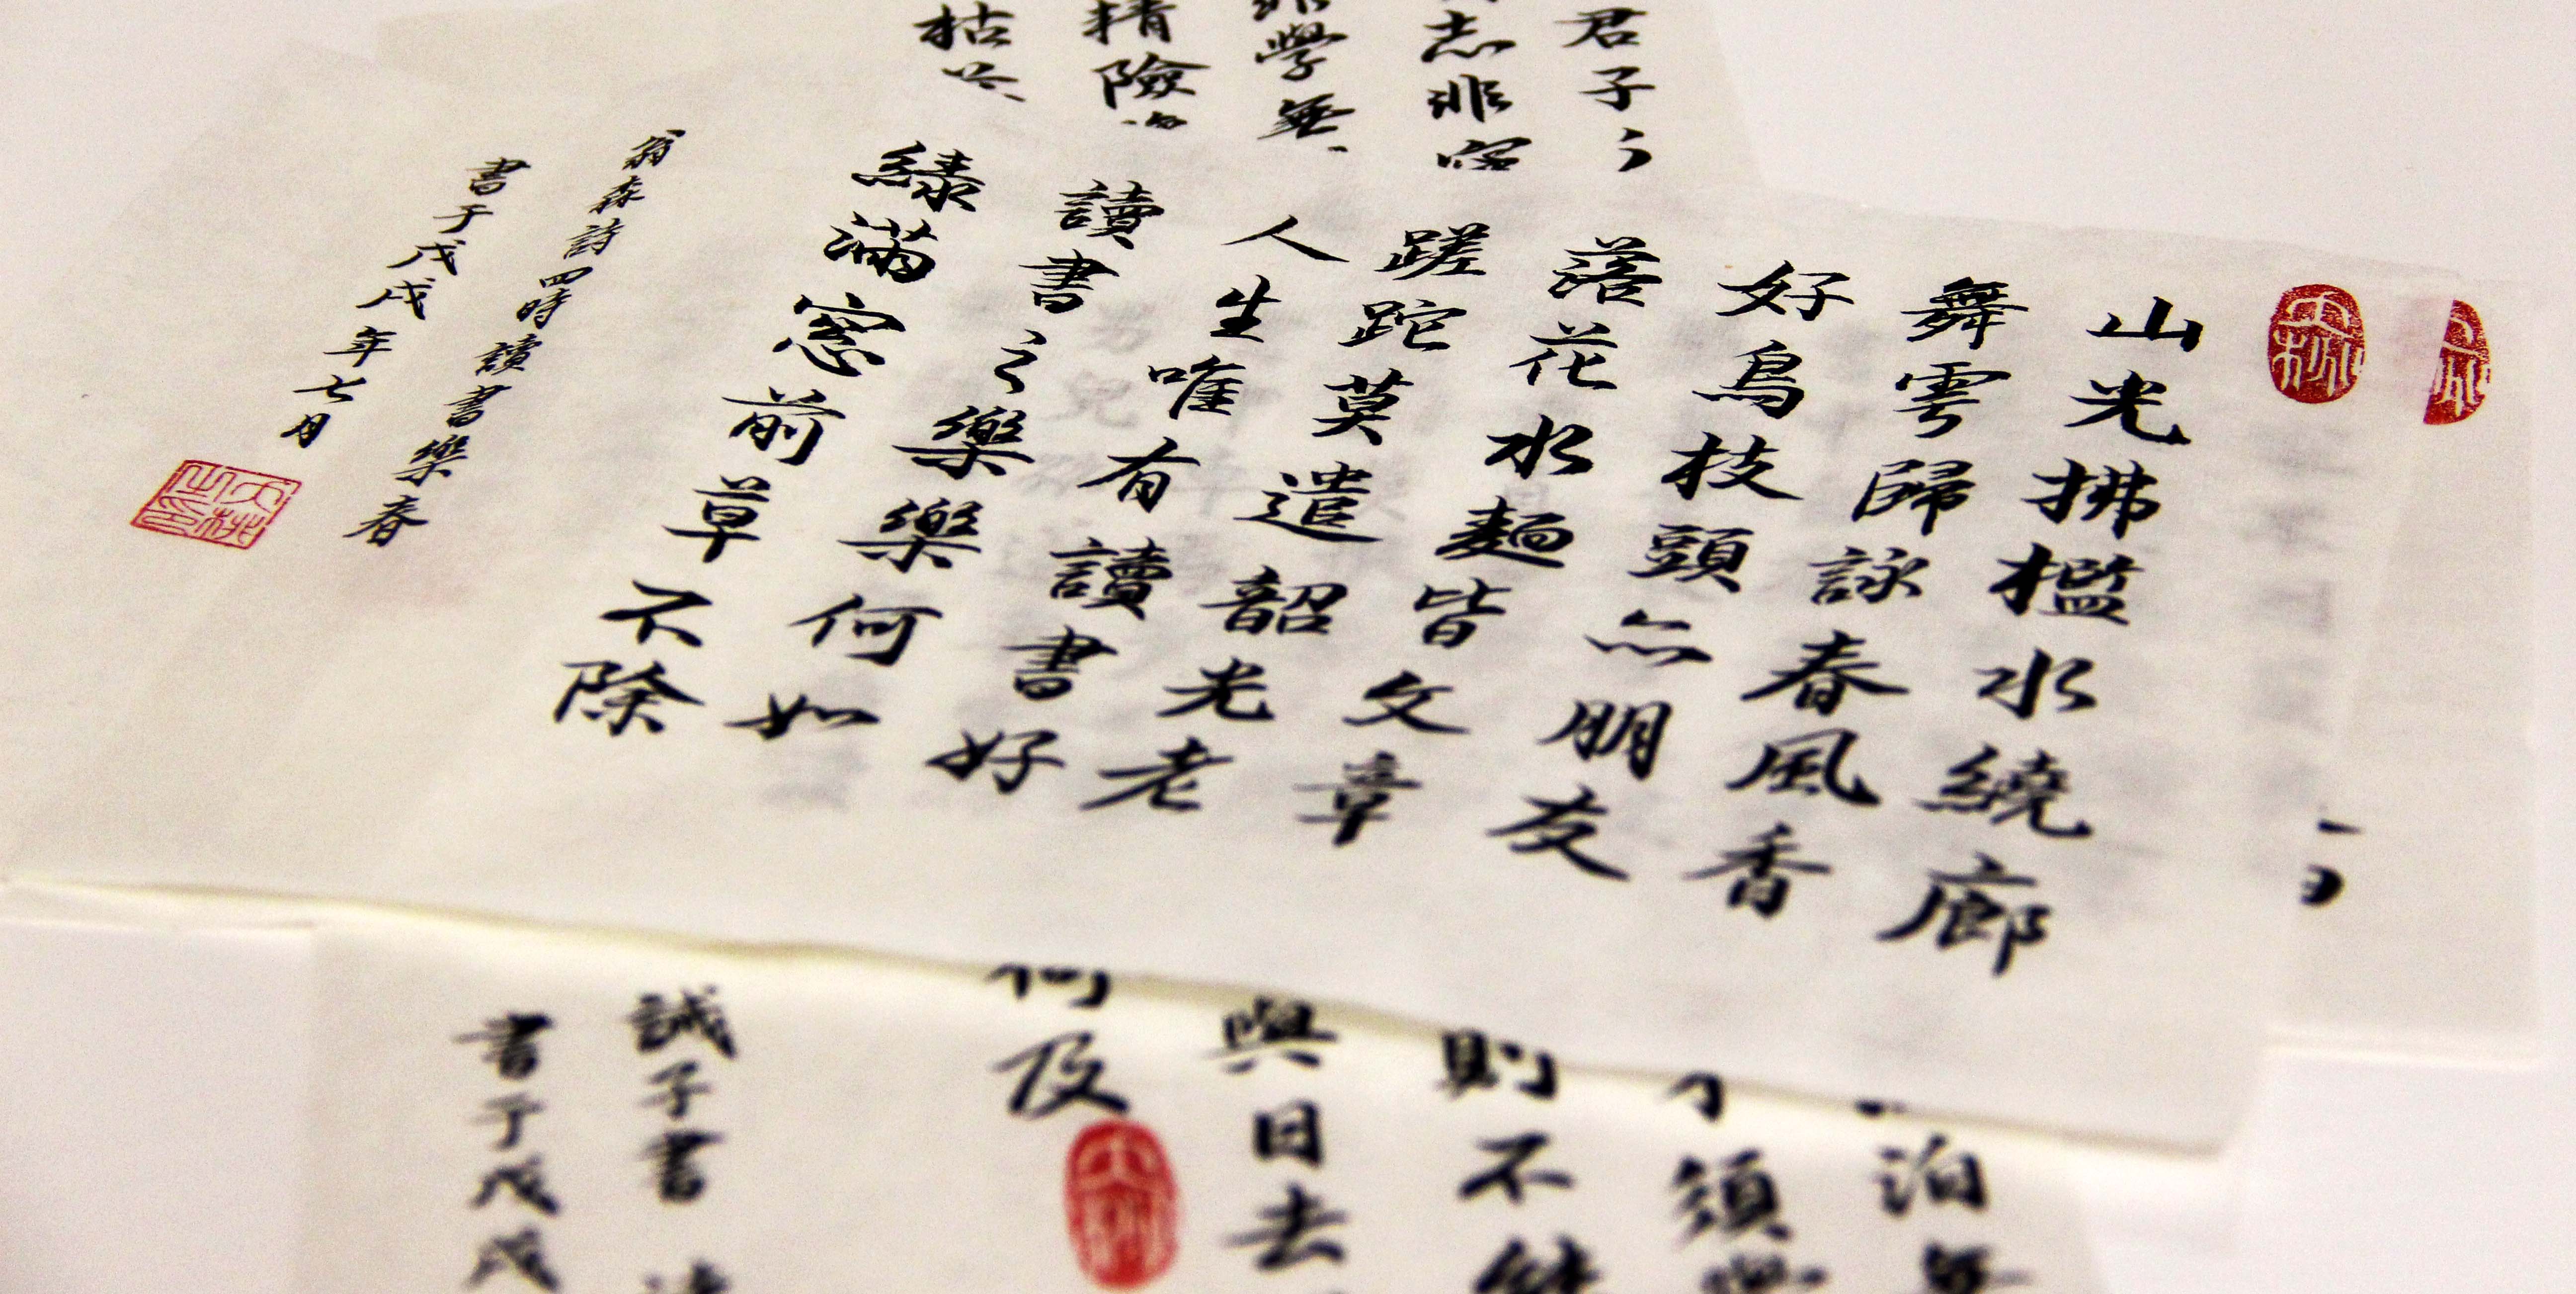 君子之
志非
學無
精險
枯
山光拂檻水繞廊
舞雩歸詠春風香
好鳥枝頭亦朋友
落花水麵皆文章
蹉跎莫遣韶光老
人生唯有讀書好
讀書之樂樂何如
綠滿窓前草不除
翁森詩四時讀書樂春
書于戊戌年七月
泊
須
則不
與日去
何及
誡子書
書于戊戌